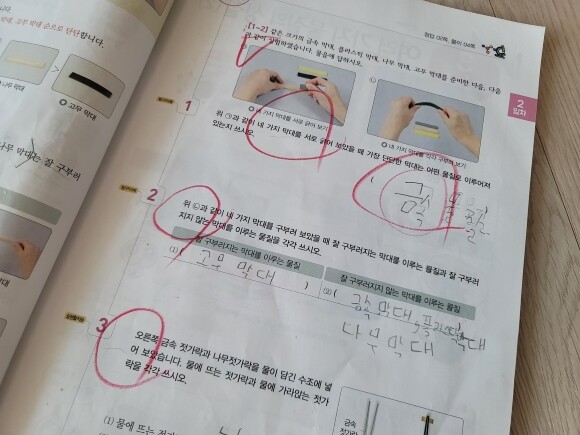 정답 00쪽, 풀이 04쪽
2
일차
막대, 고무 막대 순으로 단단합니다.
나무 막대
고무 막대
[1~2] 같은 크기의 금속 막대, 플라스틱 막대, 나무 막대, 고무 막대를 준비한 다음, 다음
과 같이 실험하였습니다. 물음에 답하시오.
㉡
네 가지 막대를 서로 긁어 보기
네 가지 막대를 각각 구부려 보기
1
위 ㉠과 같이 네 가지 막대를 서로 긁어 보았을 때 가장 단단한 막대는 어떤 물질로 이루어져
있는지 쓰시오.
나무 막대는 잘 구부러
2
위 ㉡과 같이 네 가지 막대를 구부려 보았을 때 잘 구부러지는 막대를 이루는 물질과 잘 구부러
지지 않는 막대를 이루는 물질을 각각 쓰시오.
잘 구부러지는 막대를 이루는 물질
잘 구부러지지 않는 막대를 이루는 물질
(1) ( 고무 막대 )
(2) ( 금속 막대,
나무 막대
3
오른쪽 금속 젓가락과 나무젓가락을 물이 담긴 수조에 넣
어 보았습니다. 물에 뜨는 젓가락과 물에 가라앉는 젓가
락을 각각 쓰시오.
금속
젓가락
(1) 물에 뜨는